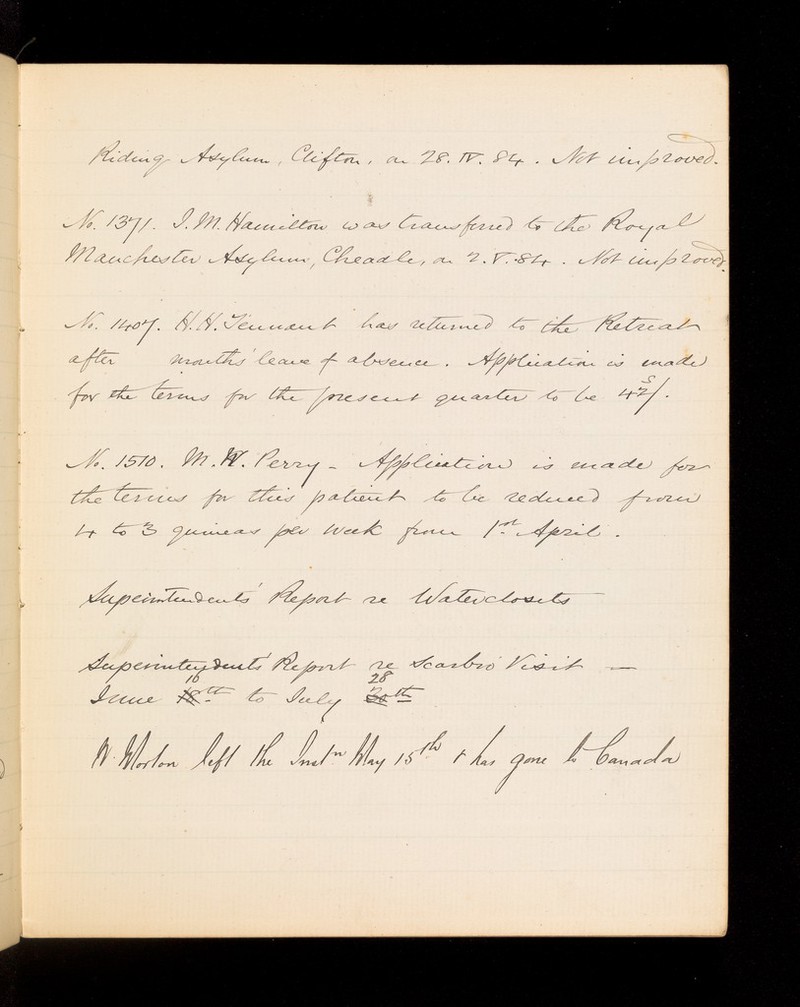 Riding Asylum, Clifton, on 28. IV. 84. Not improved.
No. 1371. I. M. Hamilton was transferred to the Royal
Manchester Asylum, Cheadle, on 2. V. 84. Not improved.
No. 1407. H. H. Tennant has returned to the Retreat
after months' leave of absence. Application is made
for the terms for the present quarter to be 42/.
No. 1510. M. W. Perry - Application is made for
the terms for this patient to be reduced from
4 to 3 guineas per week from 1st April.
Superintendents' Report re Waterclosets
Superintendents' Report re Scarbro' Visit —
June 18th 16 to July 30th 28
W. Morton left the Instn May 15th & has gone to Canada